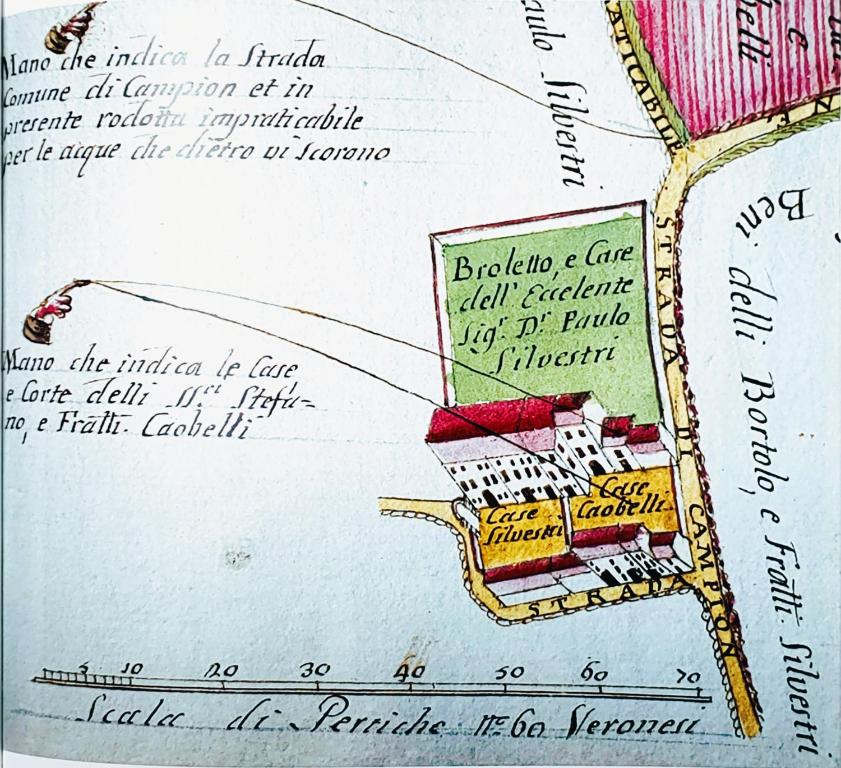 Mano che indica la Strada
Comune di Campion et in
presente rodotta impraticabile
per le acque che dietro vi scorono
aulo Silvestri
ATICABILE
belli
e
NE
Broletto, e Case
dell' Eccelente
Sigr. Dr. Paulo
Silvestri
STRADA DI CAMPION
Beni delli Bortolo, e Fratti. Silvestri
Mano che indica le Case
e Corte delli SS.ri Stefa=
no, e Fratti. Caobelli
Case
Silvestri
Case
Caobelli
STRADA
5 10 20 30 40 50 60 70
Scala di Perriche n.o 60 Veronesi